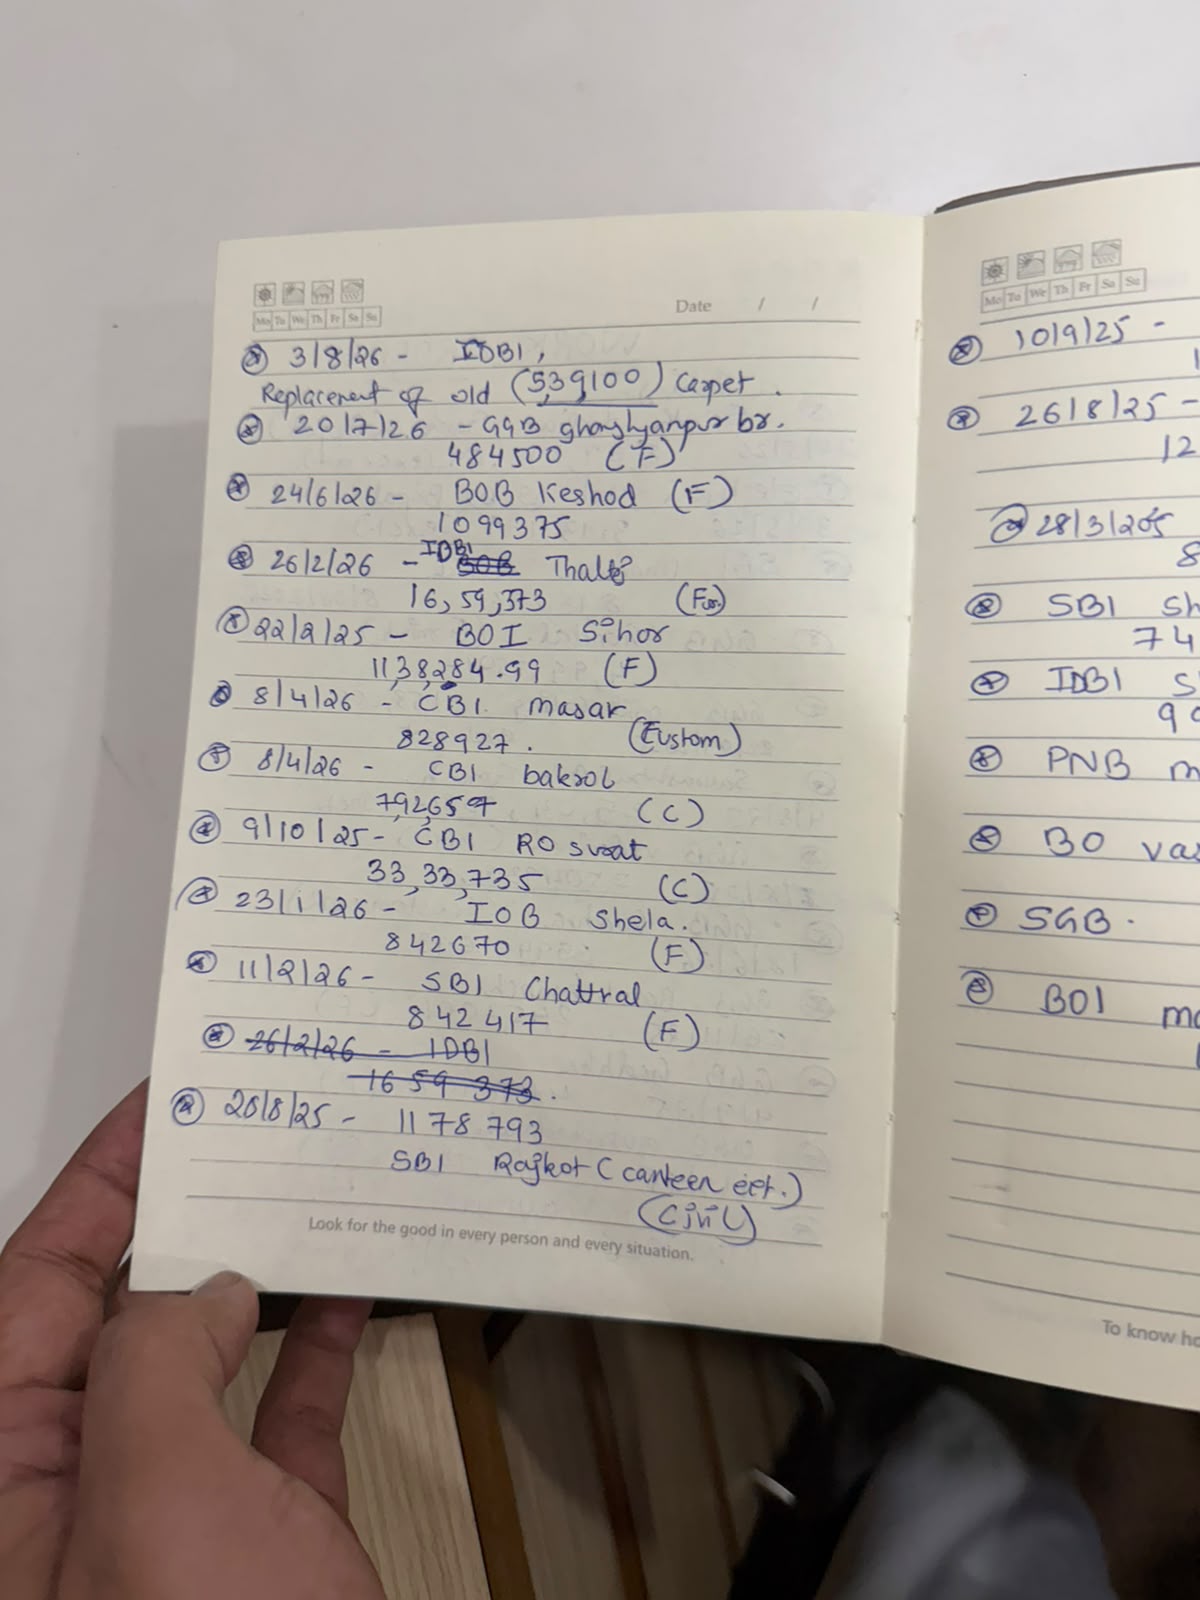 Mo Tu We Th Fr Sa Su
Date / /
3/8/26 - IDBI,
Replacement of old (5,39,100) carpet.
20/7/26 - GGB ghanshyanpur br.
484500 (F)
24/6/26 - BOB Keshod (F)
1099375
26/2/26 - IDBI BOB
16,59,373 (Fur.)
22/2/25 - BOI Sihor
11,38,284.99 (F)
8/4/26 - CBI masar
828927. (Fustom)
8/4/26 - CBI bakrol
7,92,657 (C)
9/10/25 - CBI RO surat
33,33,735 (C)
23/1/26 - IOB Shela.
842670 (F)
11/2/26 - SBI Chattral
842417 (F)
26/2/26 - IDBI
1659373.
/8/25 - 1178793
SBI Rajkot (canteen
(Civil)
Look for the good in every person and every situation.
Mo Tu We Th Fr Sa Su
10/9/25 -
1
26/8/25 -
12
28/3/25
8
SBI Sh
74
IDBI S
90
PNB m
BO va
SGB.
BOI ma
To know ho